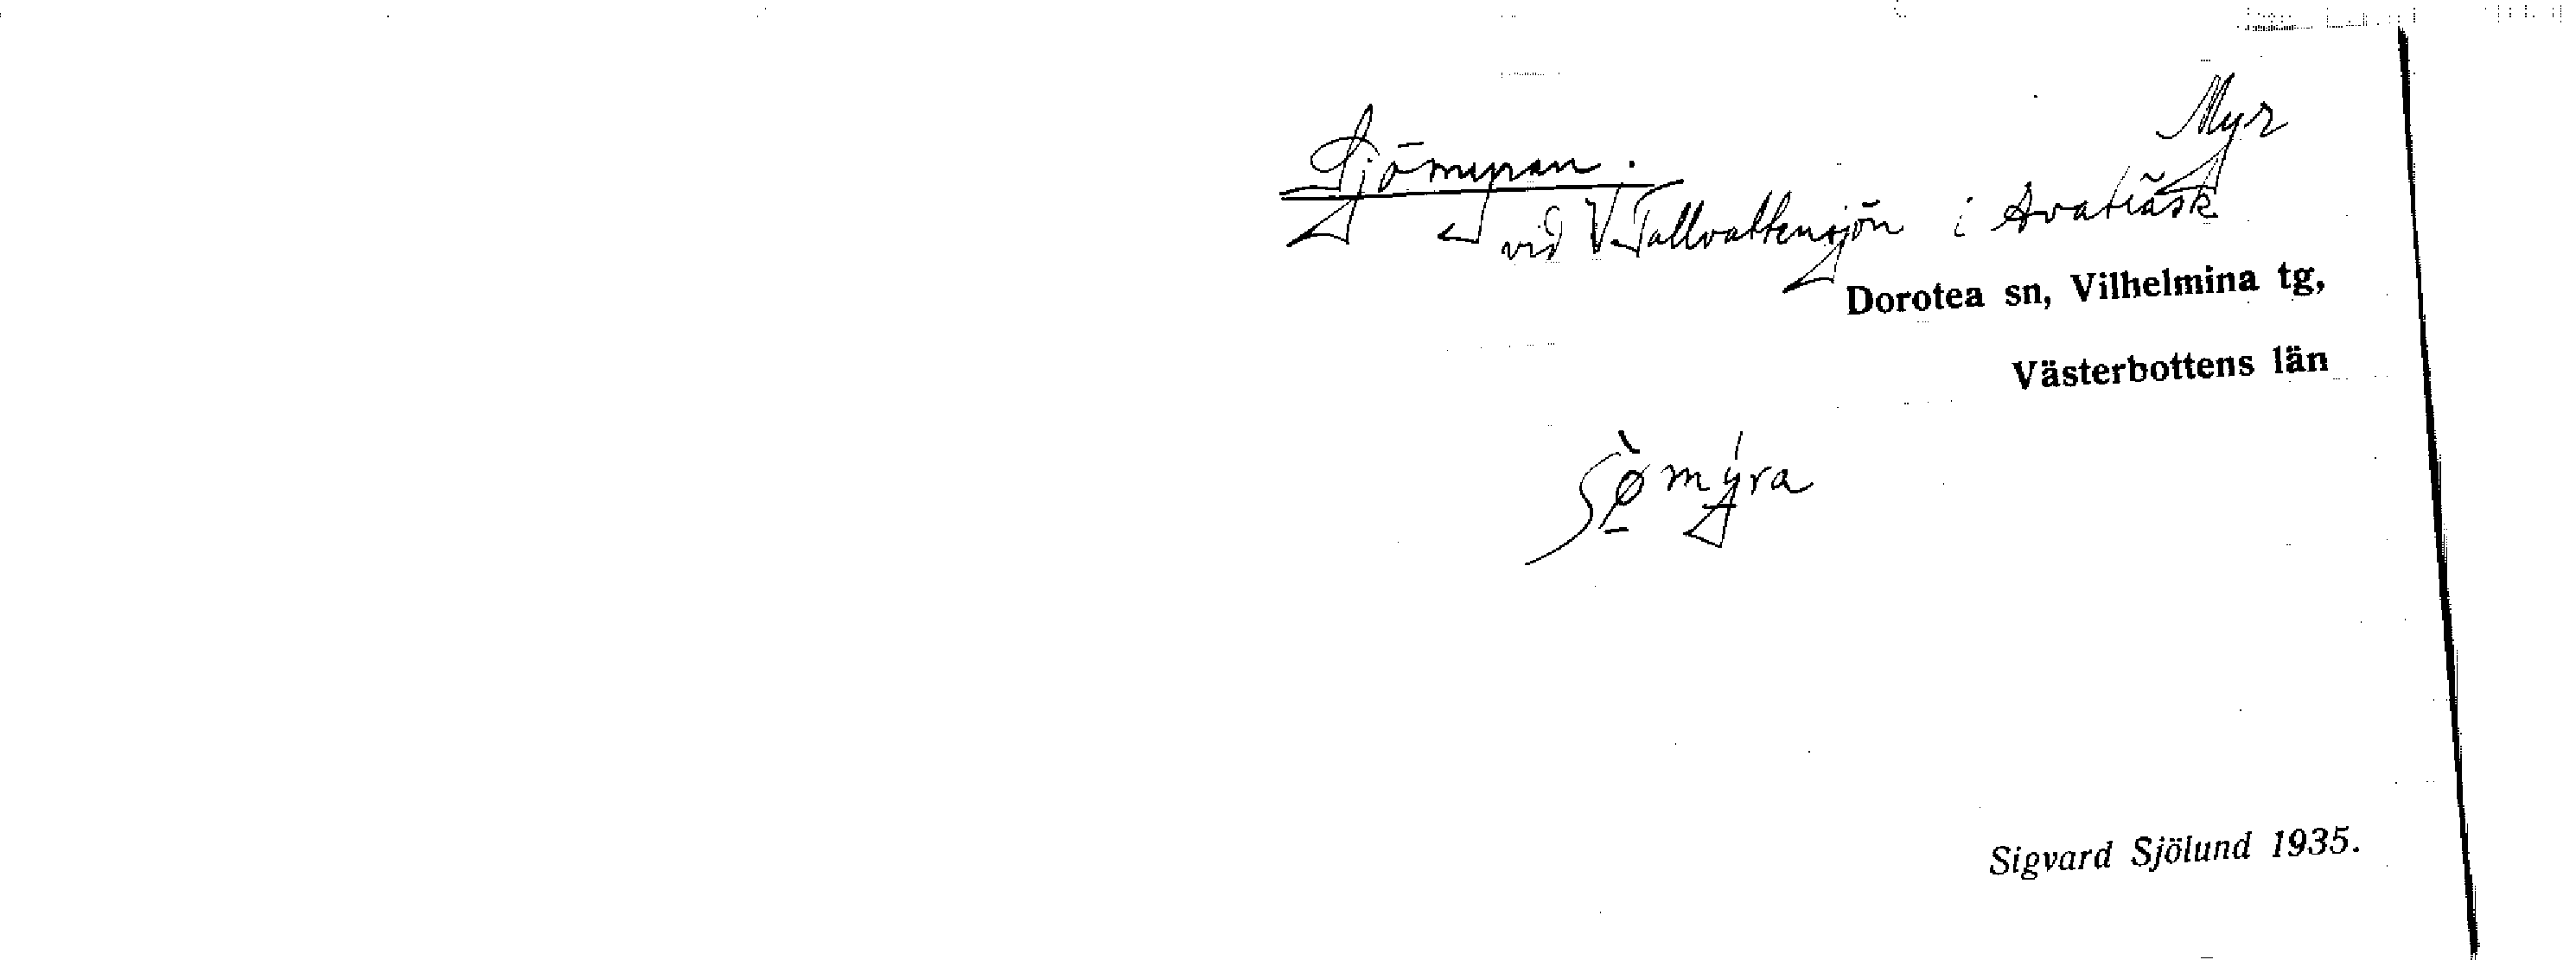 Sjömyran.
Myr
vid V. Tallvattensjön i Avaträsk
Dorotea sn, Vilhelmina tg,
Västerbottens län
ʃø̀myra
Sigvard Sjölund 1935.